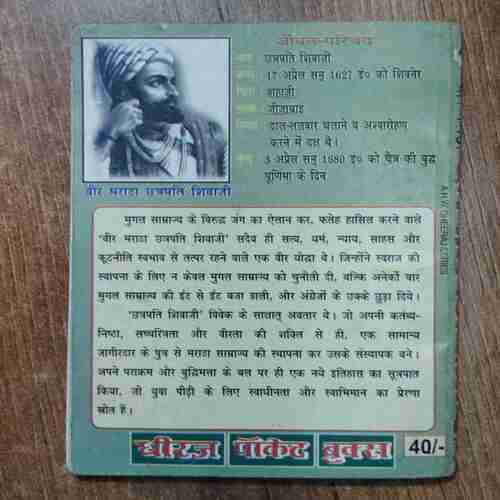 जीवन-परिचय
छत्रपति शिवाजी
17 अप्रैल सन् 1627 ई० को शिवनेर
शहाजी
जीजाबाई
ढाल-तलवार चलाने व अश्वारोहण
करने में दक्ष थे।
3 अप्रैल सन् 1680 ई० को चैत्र की बुद्ध
पूर्णिमा के दिन
वीर मराठा छत्रपति शिवाजी
मुगल साम्राज्य के विरुद्ध जंग का ऐलान कर, फतेह हासिल करने वाले
'वीर मराठा छत्रपति शिवाजी' सदैव ही सत्य, धर्म, न्याय, साहस और
कूटनीति स्वभाव से तत्पर रहने वाले एक वीर योद्धा थे। जिन्होंने स्वराज की
स्थापना के लिए न केवल मुगल साम्राज्य को चुनौती दी, बल्कि अनेकों बार
मुगल साम्राज्य की ईंट से ईंट बजा डाली, और अंग्रेजों के छक्के छुड़ा दिये।
'छत्रपति शिवाजी' विवेक के साक्षात् अवतार थे। जो अपनी कर्तव्य-
निष्ठा, सच्चरित्रता और वीरता की शक्ति से ही, एक सामान्य
जागीरदार के पुत्र से मराठा साम्राज्य की स्थापना कर उसके संस्थापक बने।
अपने पराक्रम और बुद्धिमत्ता के बल पर ही एक नये इतिहास का सूत्रपात
किया, जो युवा पीढ़ी के लिए स्वाधीनता और स्वाभिमान का प्रेरणा
स्रोत हैं।
धीरज पॉकेट बुक्स
40/-